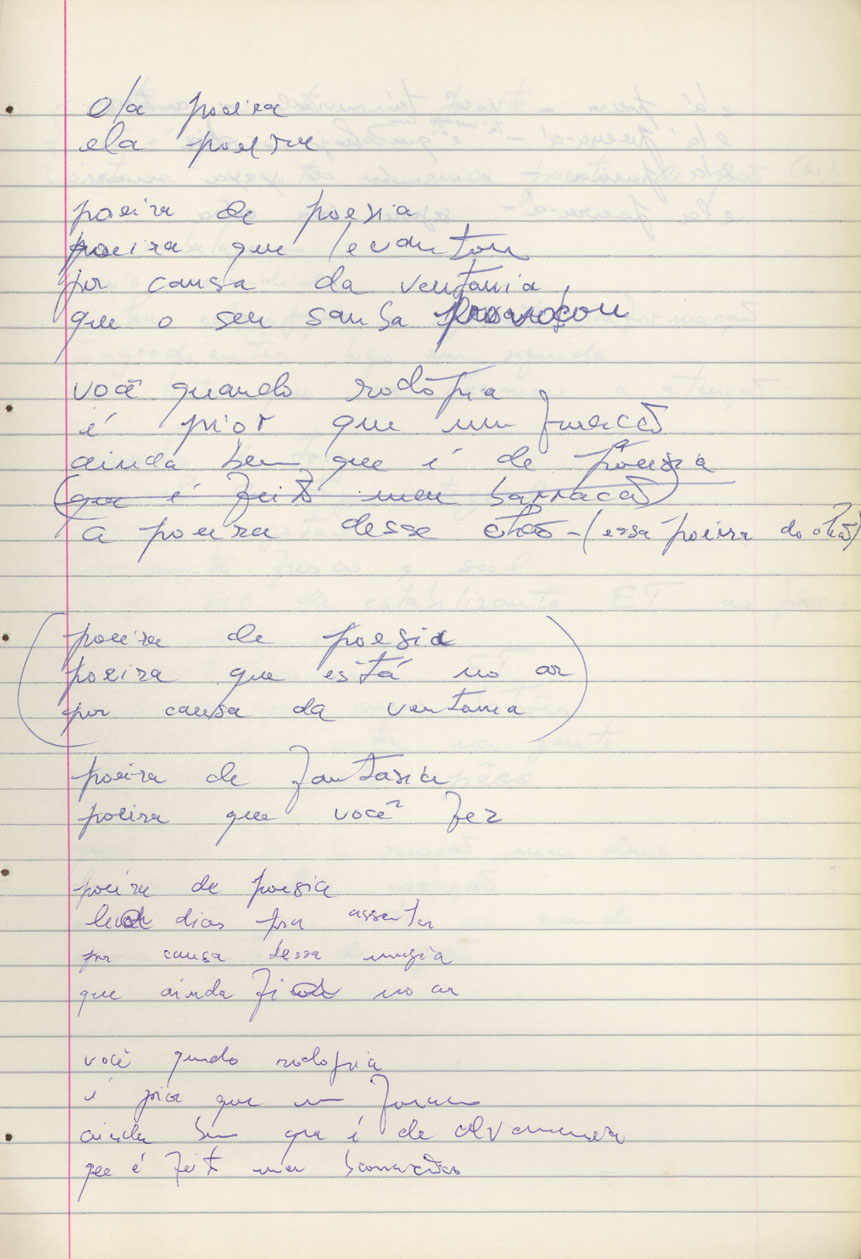 ela poeira
ela poeira
poeira de poesia
poeira que levantou
por causa da ventania
que o seu samba provocou
você quando rodopia
é pior que um furacão
ainda bem que é de poesia
(que é feito meu barracão)
a poeira desse chão - (essa poeira do chão)
poeira de poesia
poeira que está no ar
por causa da ventania
poeira de fantasia
poeira que você fez
poeira de poesia
leva dias pra assentar
por causa dessa magia
que ainda fica no ar
você quando rodopia
é pior que um furacão
ainda bem que é de alvenaria
que é feito meu barracão